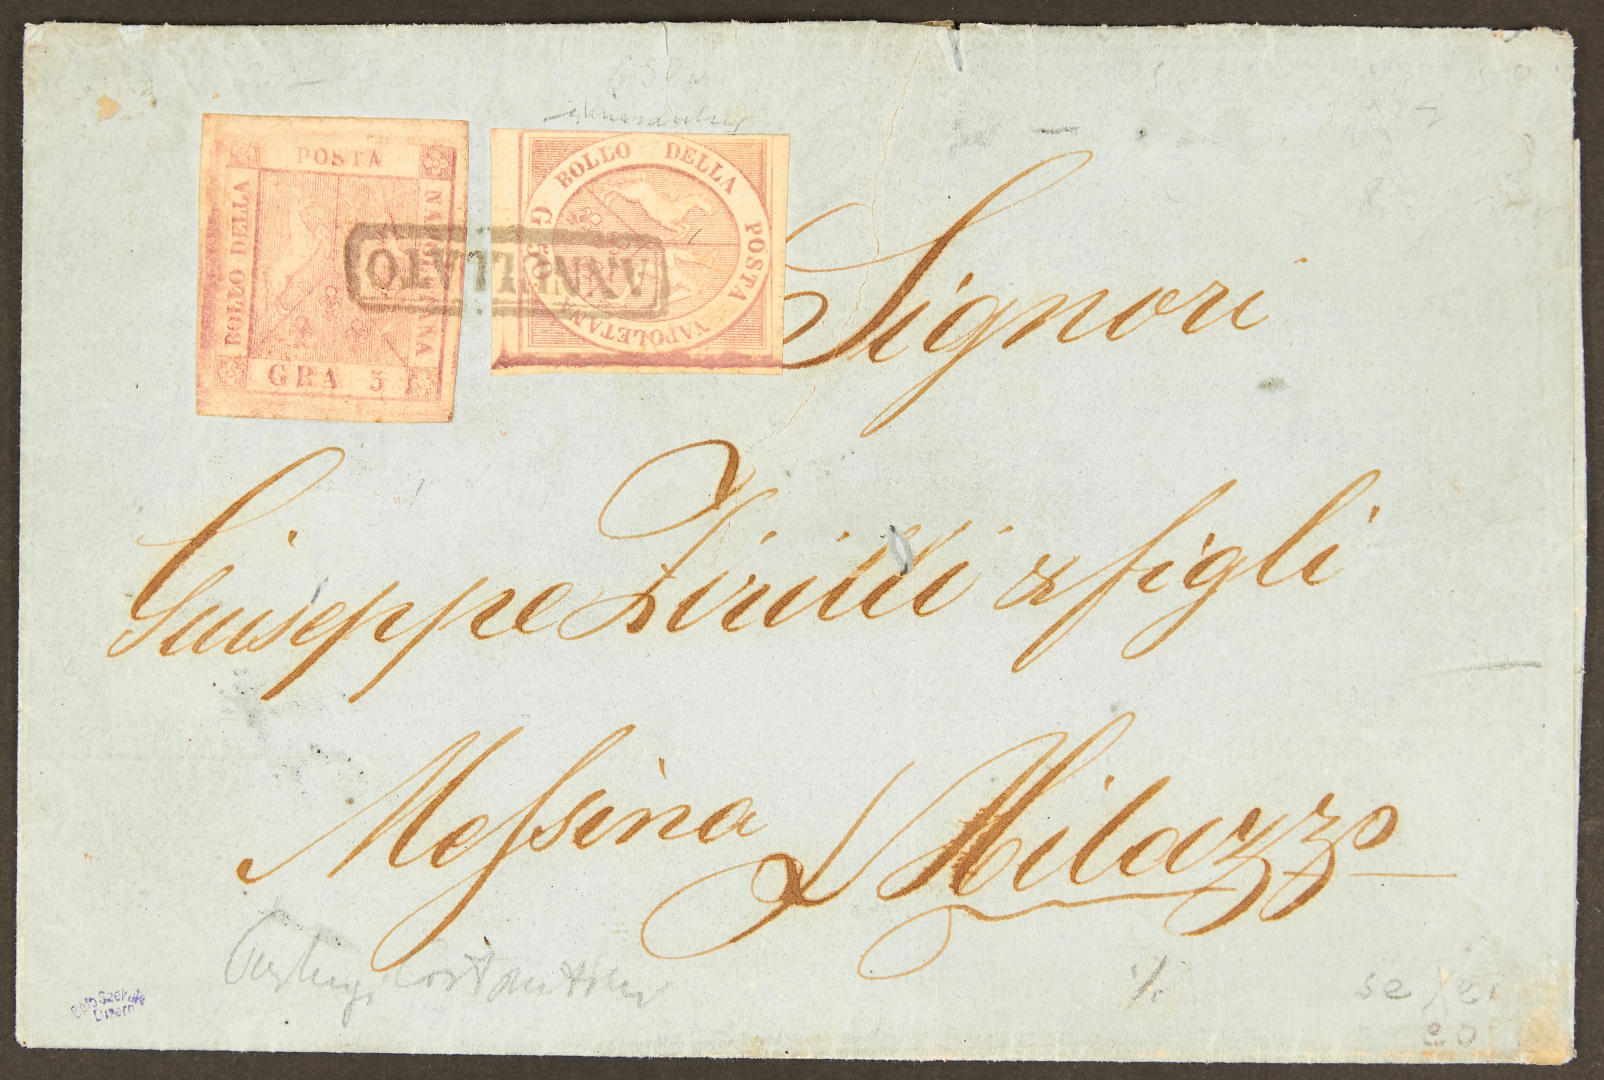 POSTA
BOLLO DELLA
NAPOLETANA
GRA 5
BOLLO DELLA POSTA NAPOLETANA
G 50
ANNULLATO
Signori
Giuseppe Ziritti & figli
Messina Milazzo
Costantino
20